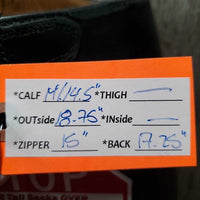 *CALF M/14.5" *THIGH —
*OUTside 18.75" *INside —
*ZIPPER 15" *BACK 17.25"